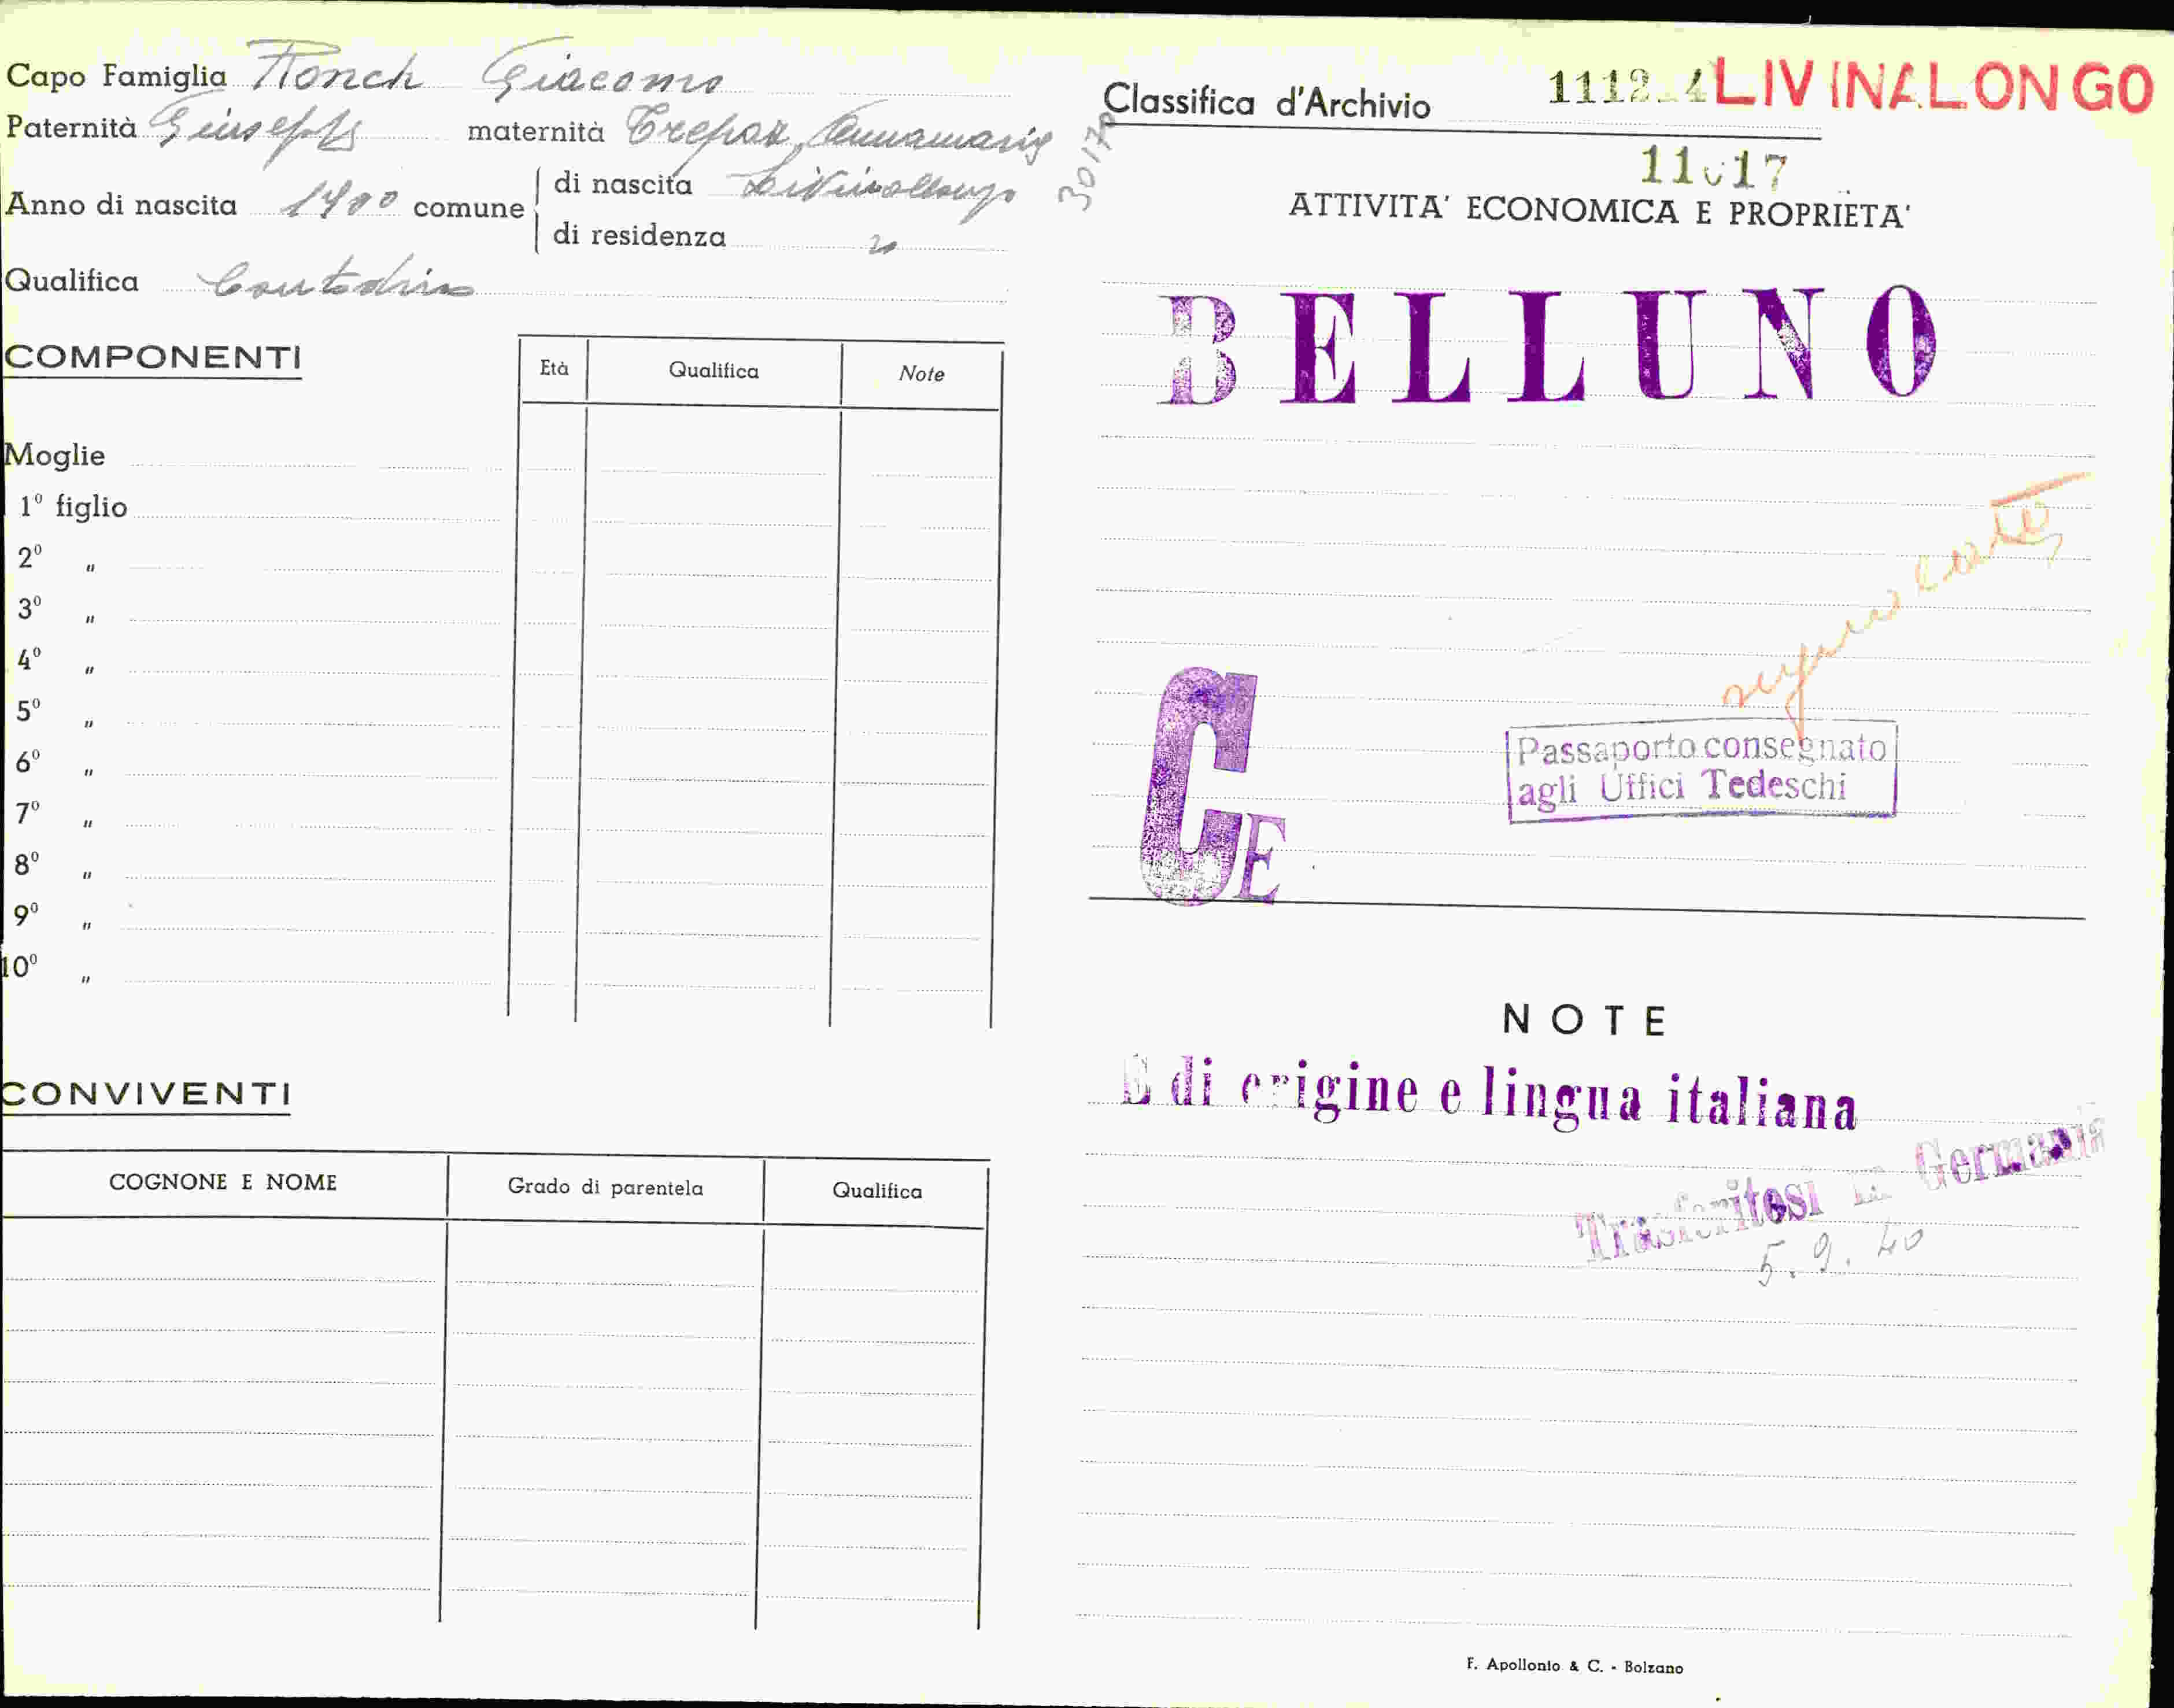 Capo Famiglia Ronch Giacomo
Paternità Giuseppe maternità Crepaz Annamaria
Anno di nascita 1900 comune
di nascita Livinallongo
di residenza
Qualifica Contadino
COMPONENTI
Età Qualifica Note
Moglie
1º figlio
2º "
3º "
4º "
5º "
6º "
7º "
8º "
9º "
10º "
CONVIVENTI
COGNONE E NOME Grado di parentela Qualifica
30170
Classifica d'Archivio 1112.4 LIVINALONGO
11017
ATTIVITA' ECONOMICA E PROPRIETA'
BELLUNO
CE
Passaporto consegnato
agli Uffici Tedeschi
NOTE
E di origine e lingua italiana
Trasferitosi in Germania
5.9.40
F. Apollonio & C. - Bolzano